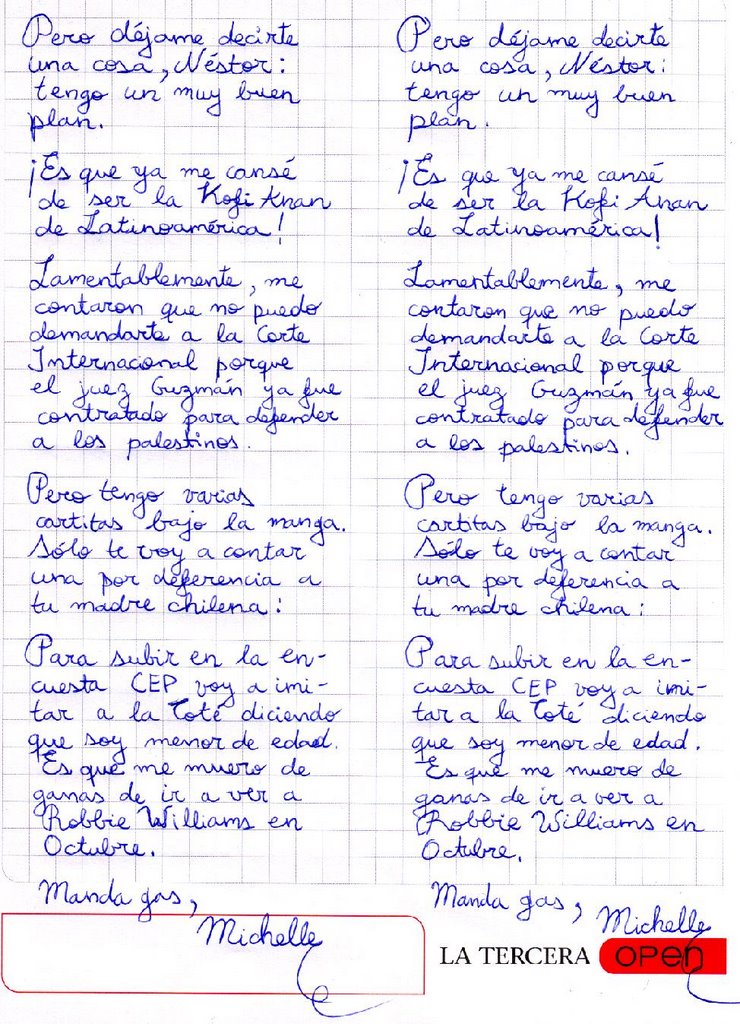 Pero déjame decirte
una cosa, Néstor:
tengo un muy buen
plan.
¡Es que ya me cansé
de ser la Kofi Anan
de Latinoamérica!
Lamentablemente, me
contaron que no puedo
demandarte a la Corte
Internacional porque
el juez Guzmán ya fue
contratado para defender
a los palestinos.
Pero tengo varias
cartitas bajo la manga.
Sólo te voy a contar
una por deferencia a
tu madre chilena:
Para subir en la en-
cuesta CEP voy a imi-
tar a la Toté diciendo
que soy menor de edad.
Es que me muero de
ganas de ir a ver a
Robbie Williams en
Octubre.
Manda gas,
Michelle
Pero déjame decirte
una cosa, Néstor:
tengo un muy buen
plan.
¡Es que ya me cansé
de ser la Kofi Anan
de Latinoamérica!
Lamentablemente, me
contaron que no puedo
demandarte a la Corte
Internacional porque
el juez Guzmán ya fue
contratado para defender
a los palestinos.
Pero tengo varias
cartitas bajo la manga.
Sólo te voy a contar
una por deferencia a
tu madre chilena:
Para subir en la en-
cuesta CEP voy a imi-
tar a la Toté diciendo
que soy menor de edad.
Es que me muero de
ganas de ir a ver a
Robbie Williams en
Octubre.
Manda gas,
Michelle
LA TERCERA open